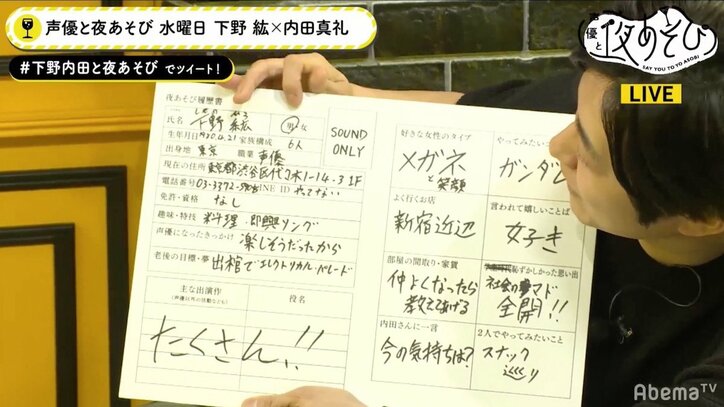 声優と夜あそび 水曜日 下野 紘×内田真礼
#下野内田と夜あそび でツイート!
声優と夜あそび
SAY YOU TO YO ASOBI
LIVE
夜あそび履歴書
氏名 下野 紘
男・女
生年月日 1980.4.21 家族構成 6人
出身地 東京 職業 声優
SOUND ONLY
現在の住所 東京都渋谷区代々木1-14-3 1F
電話番号 03-3372- LINE ID やってない
免許・資格 なし
趣味・特技 料理 即興ソング
声優になったきっかけ 楽しそうだったから
老後の目標・夢 出棺でエレクトリカルパレード
主な出演作
(声優以外の活動なども)
役名
たくさん!!
好きな女性のタイプ
メガネ
と笑顔
やってみたい
ガンダム
よく行くお店
新宿近辺
言われて嬉しいことば
女子き
部屋の間取り・家賃
仲よくなったら
教えてあげる
恥ずかしかった思い出
社会のマド
全開!!
内田さんに一言
今の気持ちは?
2人でやってみたいこと
スナック
巡り
AbemaTV